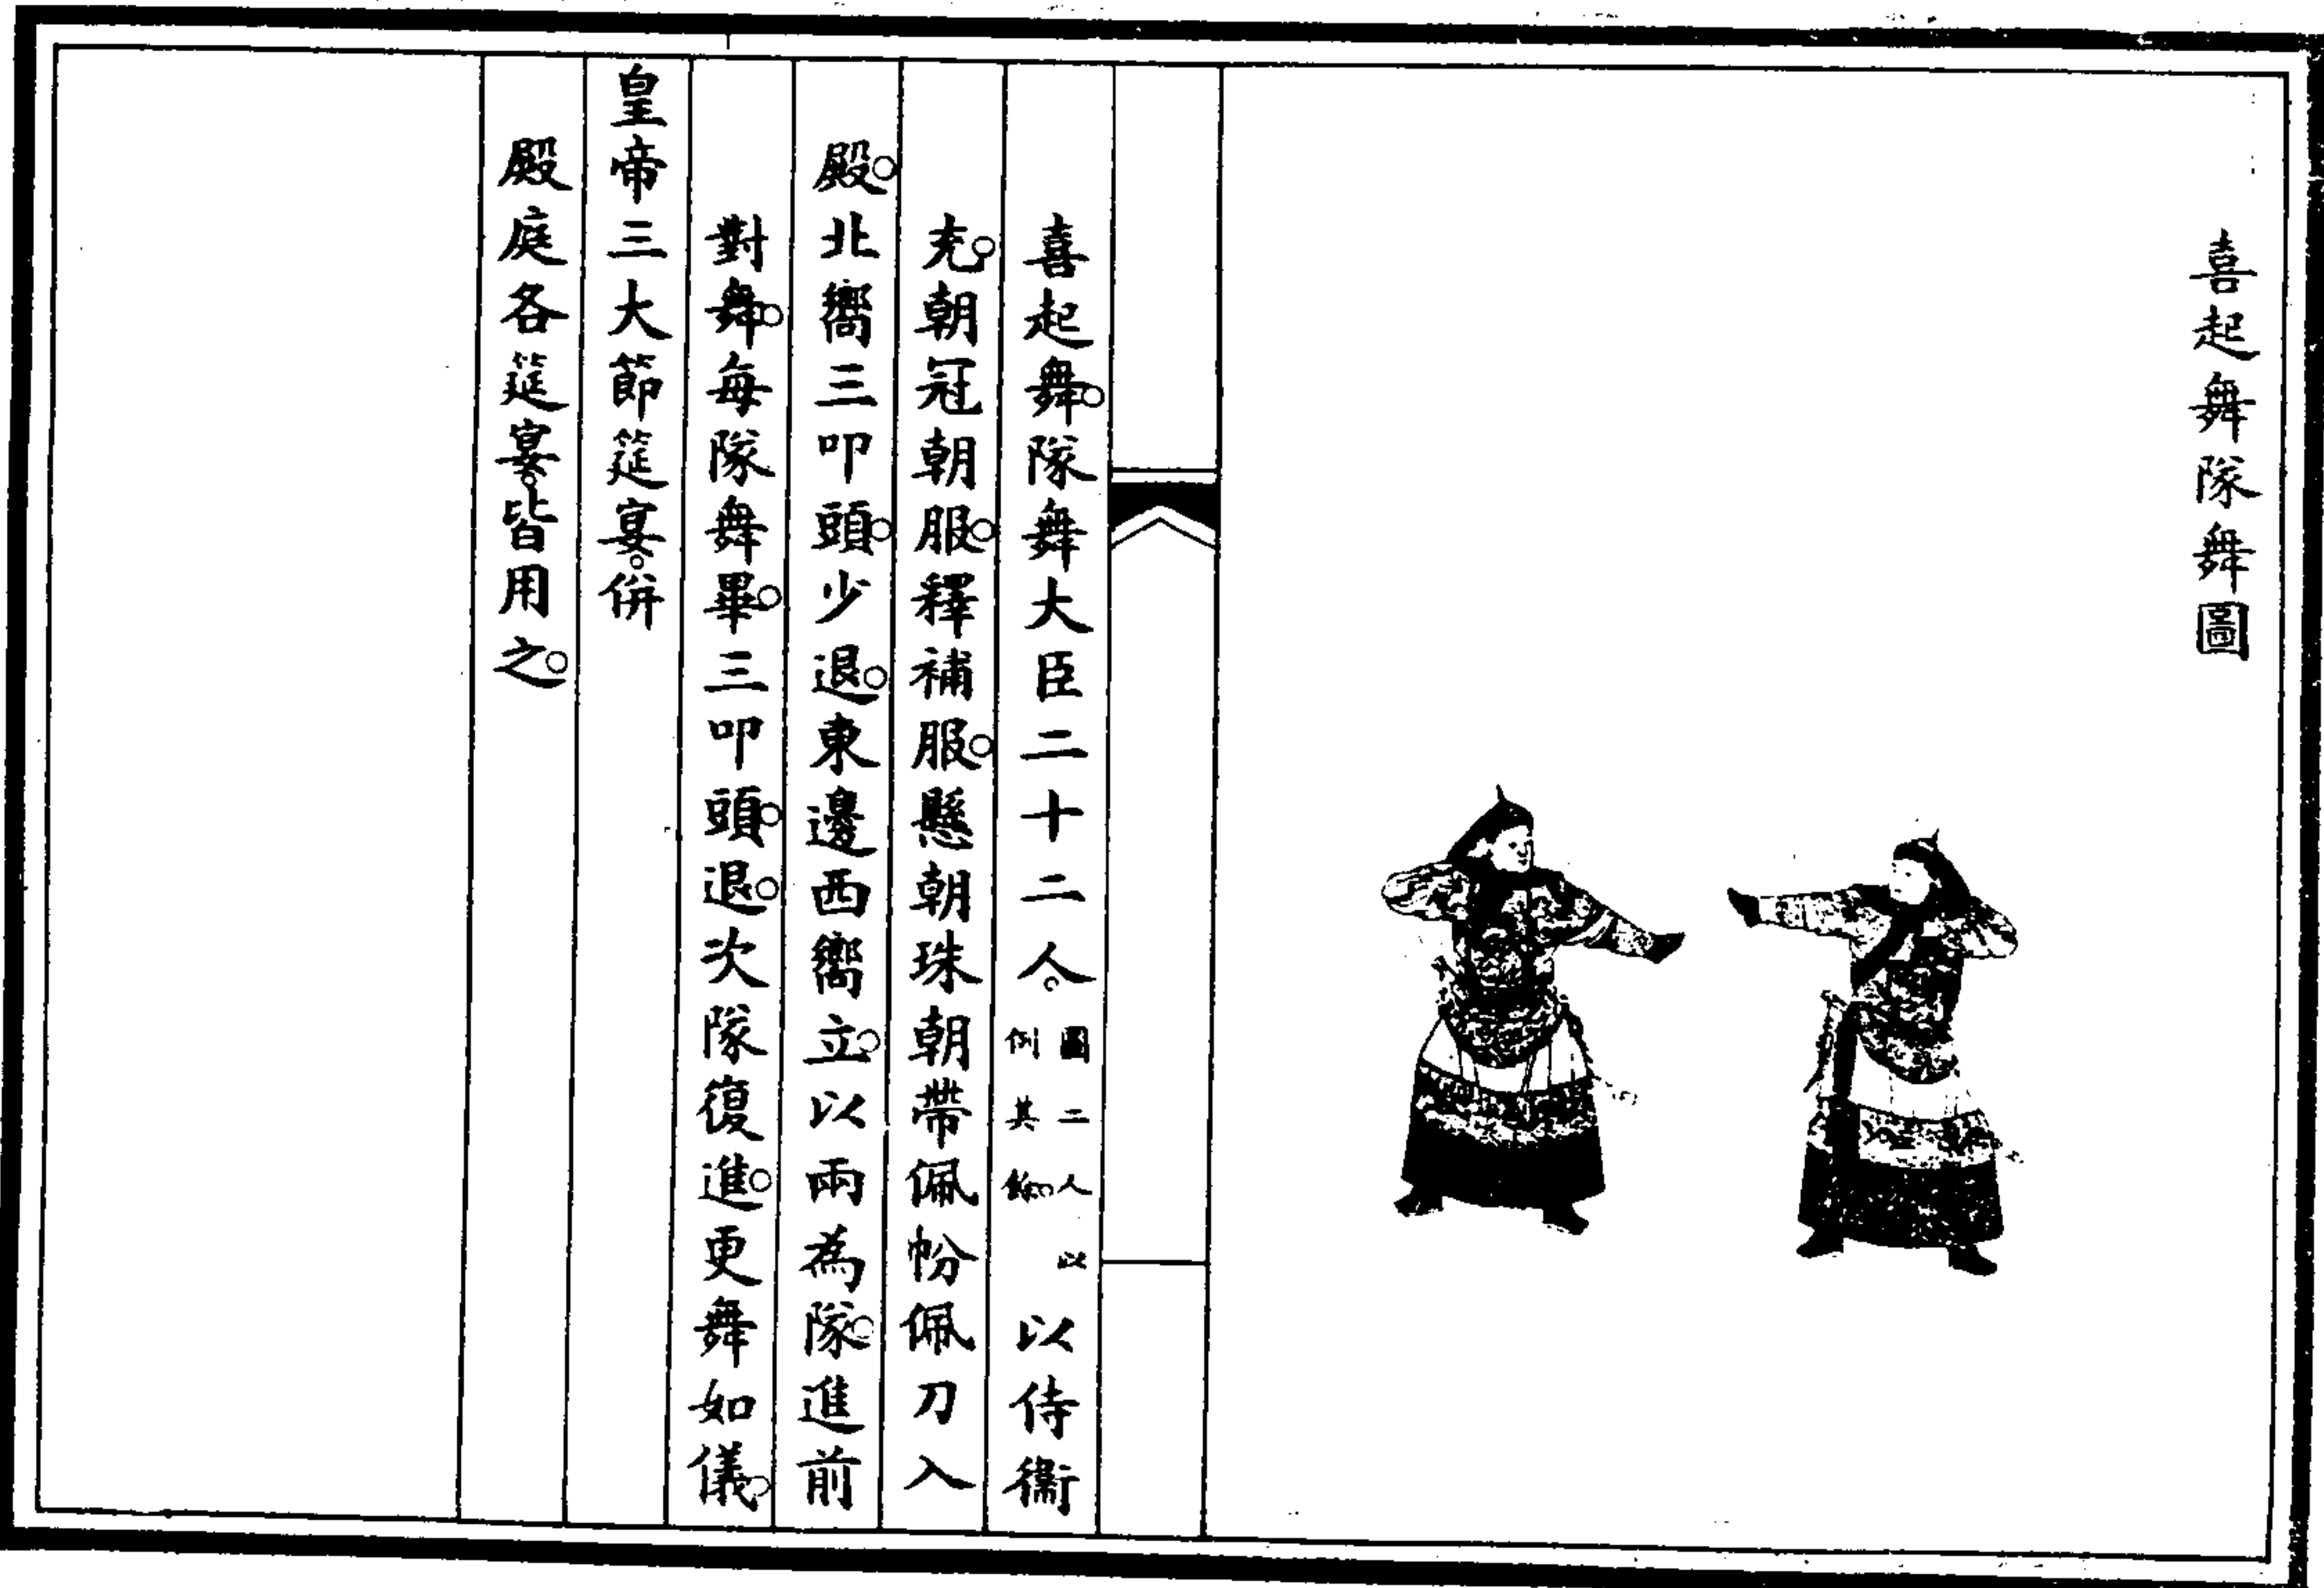 喜起舞隊舞圖
喜起舞。隊舞大臣二十二人。圖二人以例其餘。以侍衞
充。朝冠朝服。釋補服。懸朝珠朝帶佩帉佩刀入
殿。北嚮三叩頭。少退。東邊西嚮立。以兩為隊。進前
對舞。每隊舞畢。三叩頭。退。次隊復進。更舞如儀。
皇帝三大節筵宴。併
殿庭各筵宴。皆用之。